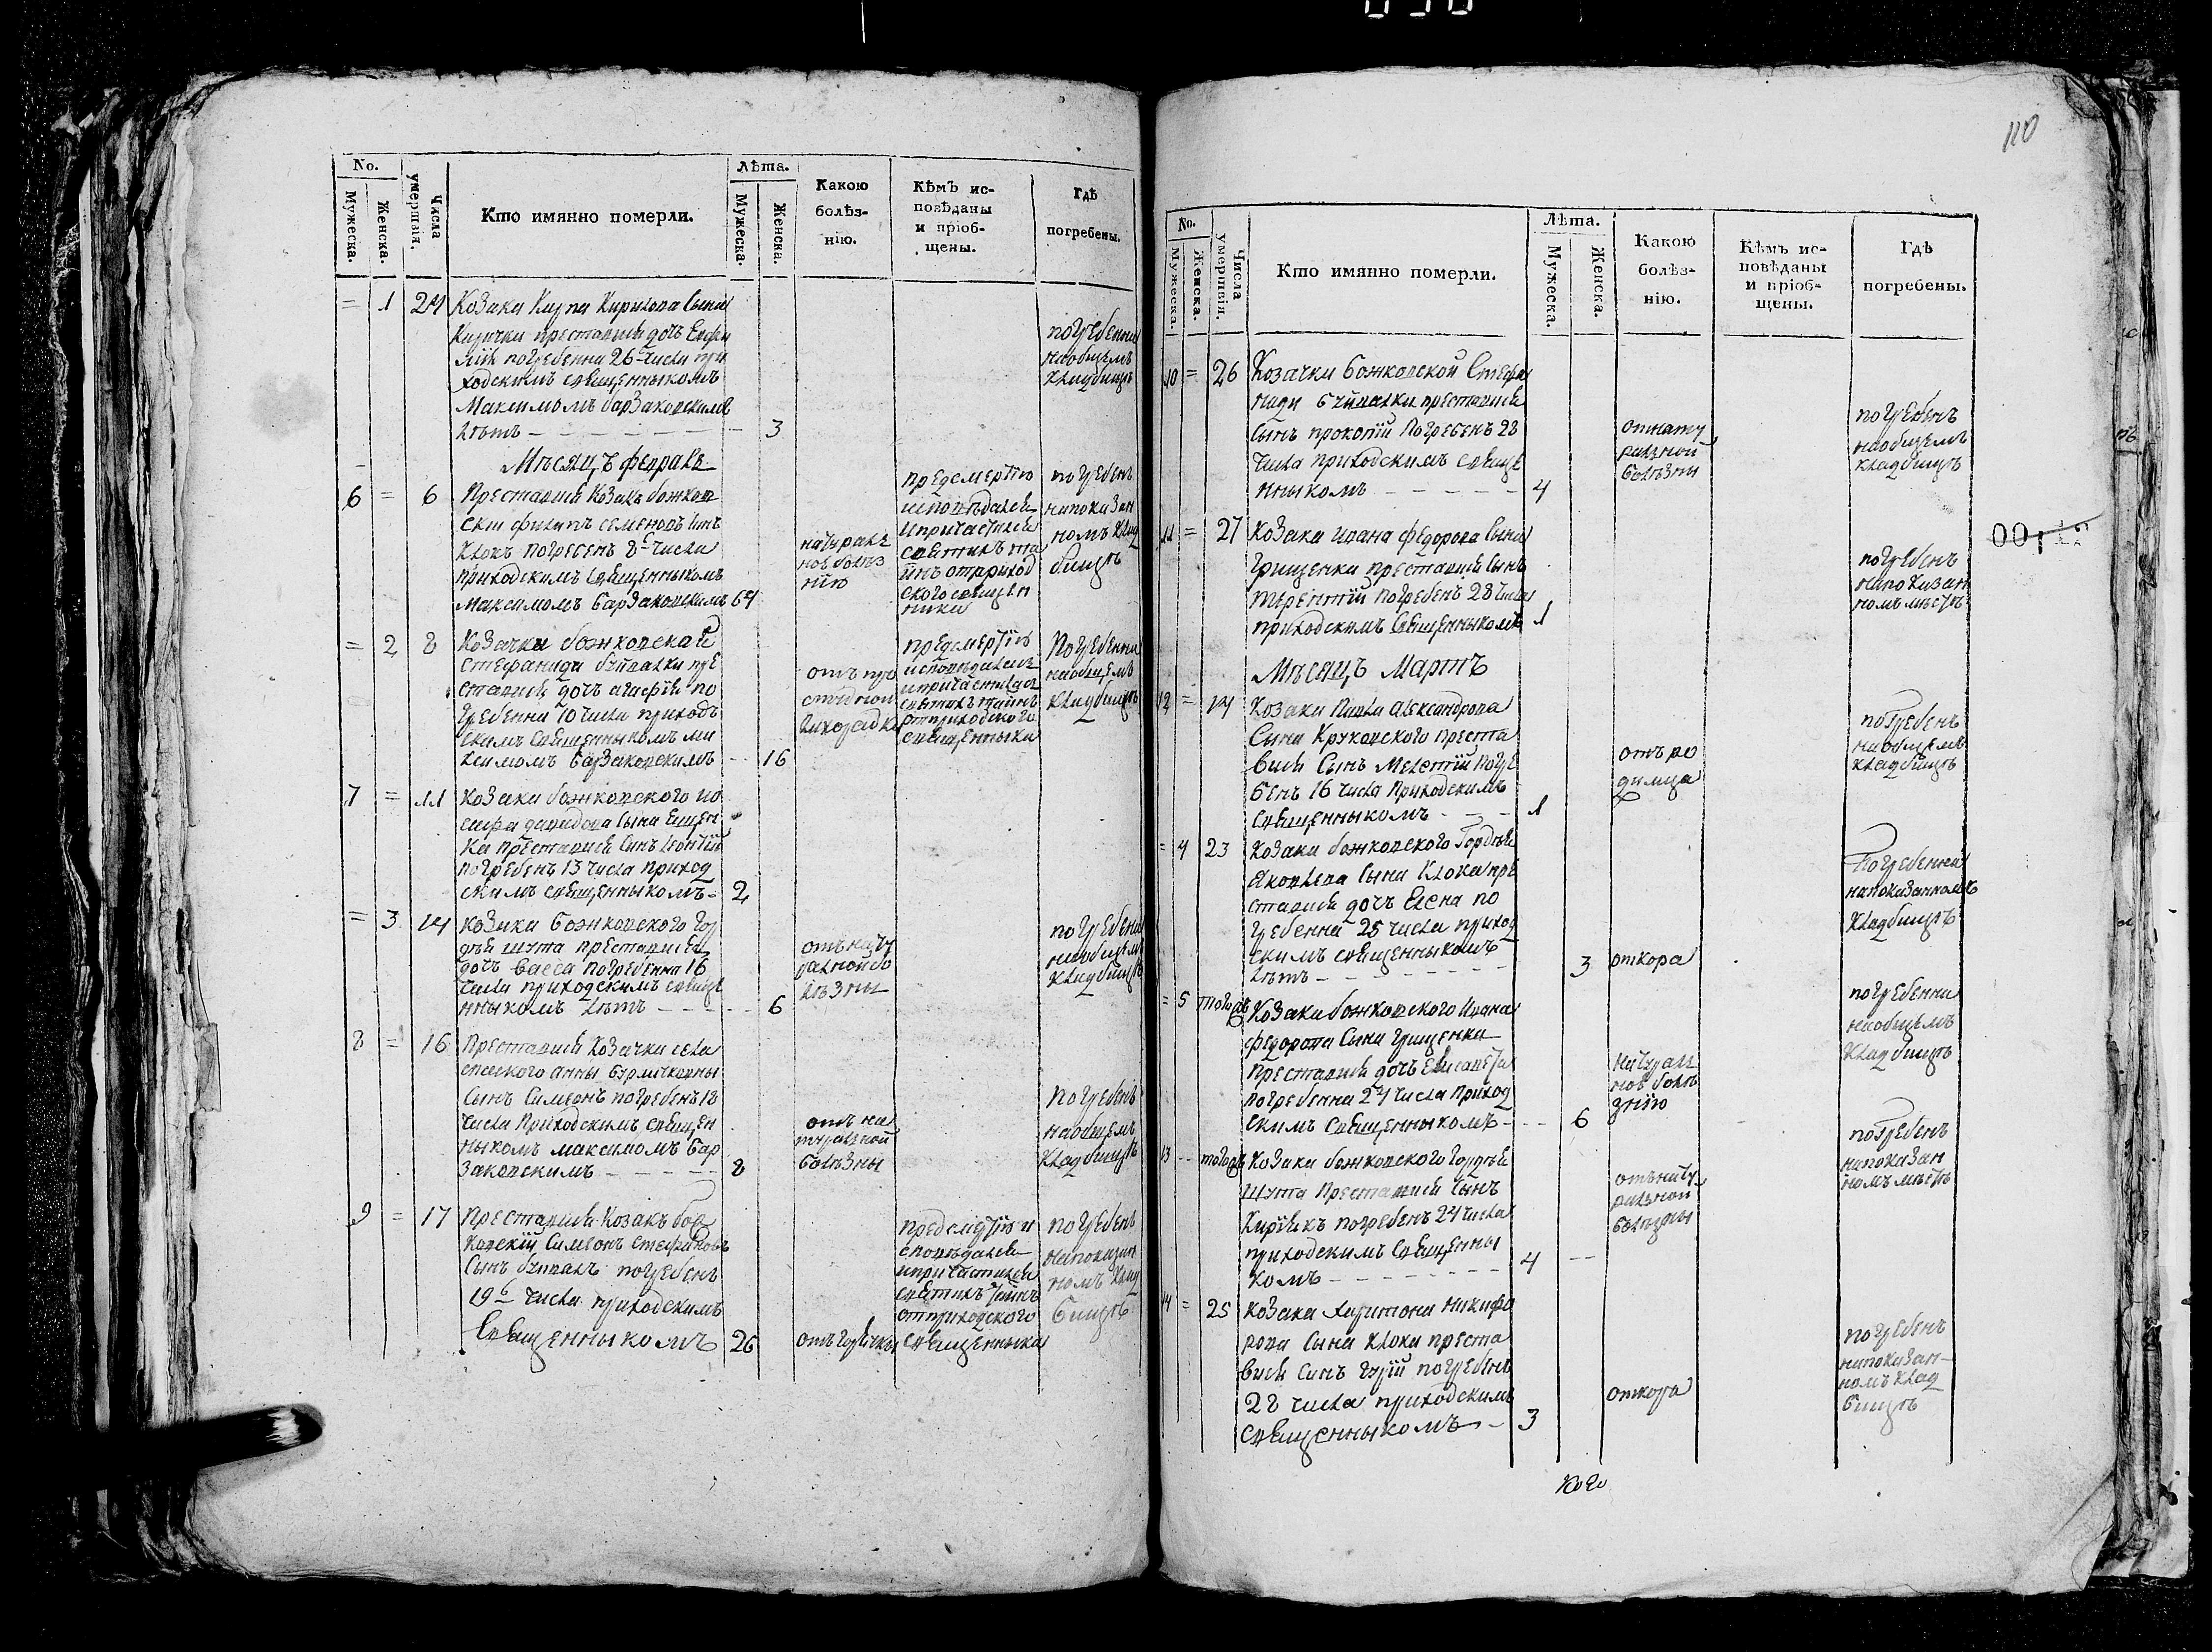 110
No.
Мужеска.
Женска.
Числа умертвія.
Кто имянно померли.
Лѣта.
Мужеска.
Женска.
Какою болѣз-
нію.
Кѣмъ ис-
повѣданы
и пріоб-
щены.
Гдѣ
погребены.
= 1 24 Козака Карпа Кирилова Сына
преставися дочь
погребенна 26 числа при
ходскимъ священникомъ
Максимомъ Барзаковскимъ
лѣтъ - 3
погребенна
наобщемъ
кладбищѣ
Мѣсяцъ февраль
6 = 6 Преставися Козакъ божков
скій филипъ семеновъ синъ
Клокъ погребенъ 8 числа
приходскимъ священникомъ
Максимомъ Барзаковскимъ 64
натурал
ноѣ болѣз
нїю
предсмертїю
исповѣдался
и причастился
святихъ та
инъ отприход
ского священ
ника
погребенъ
напоказан
номъ клад
бищѣ
= 2 8 Козачки божковская
стефаниди бунчачки пре
ставися дочь агафія по
гребенна 10 числа приход
скимъ священникомъ ма
ксимомъ Барзаковскимъ - 16
отъ про
студной
лихорадки
предсмертїю
исповѣдалась
и причастилась
святихъ таинъ
отприходского
священника
Погребенна
наобщемъ
кладбищѣ
7 = 11 Козака божковского ио
сифа давидова сына Ищен
ка преставися синъ леонтїй
погребенъ 13 числа приход
скимъ священникомъ - 2
= 3 14 Козака Божковского Гор
дѣя шута преставися
дочь васса погребенна 16
числа приходскимъ свяще
нникомъ лѣтъ - 6
отънату
ралной бо
лѣзны
погребенна
наобщемъ
кладбищѣ
8 = 16 Преставися Козачки села
спаского анны
Сынъ Симеонъ погребенъ 18
числа Приходскимъ священ
никомъ максимомъ Бар
заковскимъ - 8
отъ на
туралной
болѣзны
погребенъ
наобщемъ
кладбищѣ
9 = 17 Преставися Козакъ бож
ковскїй Симеонъ Стефановъ
Сынъ погребенъ
19 числа приходскимъ
Священникомъ 26
отъ горячки
предсмертїю и
сповѣдался
и причастился
святихъ таинъ
отприходского
священника
погребенъ
напоказан
номъ клад
бищѣ
No.
Мужеска.
Женска.
Числа умертвія.
Кто имянно померли.
Лѣта.
Мужеска.
Женска.
Какою
болѣз-
нію.
Кѣмъ ис-
повѣданы
и пріоб-
щены.
Гдѣ
погребены.
10 = 26 Козачки Божковской Стефа
ниди преставися
Сынъ прокопїй Погребенъ 28
числа приходскимъ свяще
нникомъ - 4
отнату
ралной
болѣзны
погребенъ
наобщемъ
кладбищѣ
11 = 27 Козака ивана федорова Сына
Грищенка преставися Сынъ
терентїй погребенъ 28 числа
приходскимъ священникомъ 1
погребенъ
напоказан
номъ мѣстѣ
Мѣсяцъ Мартъ
12 = 14 Козака Павла александрова
Сына Круковского преста
вися Сынъ Мелетїй погре
бенъ 16 числа Приходскимъ
священникомъ - 1
отъ ро
димца
погребенъ
наобщемъ
кладбищѣ
= 4 23 Козака божковского Гордѣя
яковлева Сына Клока пре
ставися дочь Елена по
гребенна 25 числа приход
скимъ священникомъ
лѣтъ - 3
откора
Погребенна
напоказанномъ
кладбищѣ
= 5 тогодъ Козака божковского Ивана
федорова Сына Грищенка
преставися дочь Елисавета
погребенна 24 числа приход
скимъ священникомъ - 6
натурал
ноѣ болѣ
знїю
погребенна
наобщемъ
кладбищѣ
13 - тогодъ Козака божковского Гордѣя
Шута Преставися Сынъ
Кирїякъ погребенъ 24 числа
приходскимъ Священны
комъ - 4
отънату
ралной
болѣзны
погребенъ
напоказан
номъ мѣстѣ
14 = 25 Козака харитона никифо
рова Сына клока преста
вися Синъ Гурїй погребенъ
28 числа приходскимъ
священникомъ - 3
откора
погребенъ
напоказан-
номъ клад
бищѣ
Кого